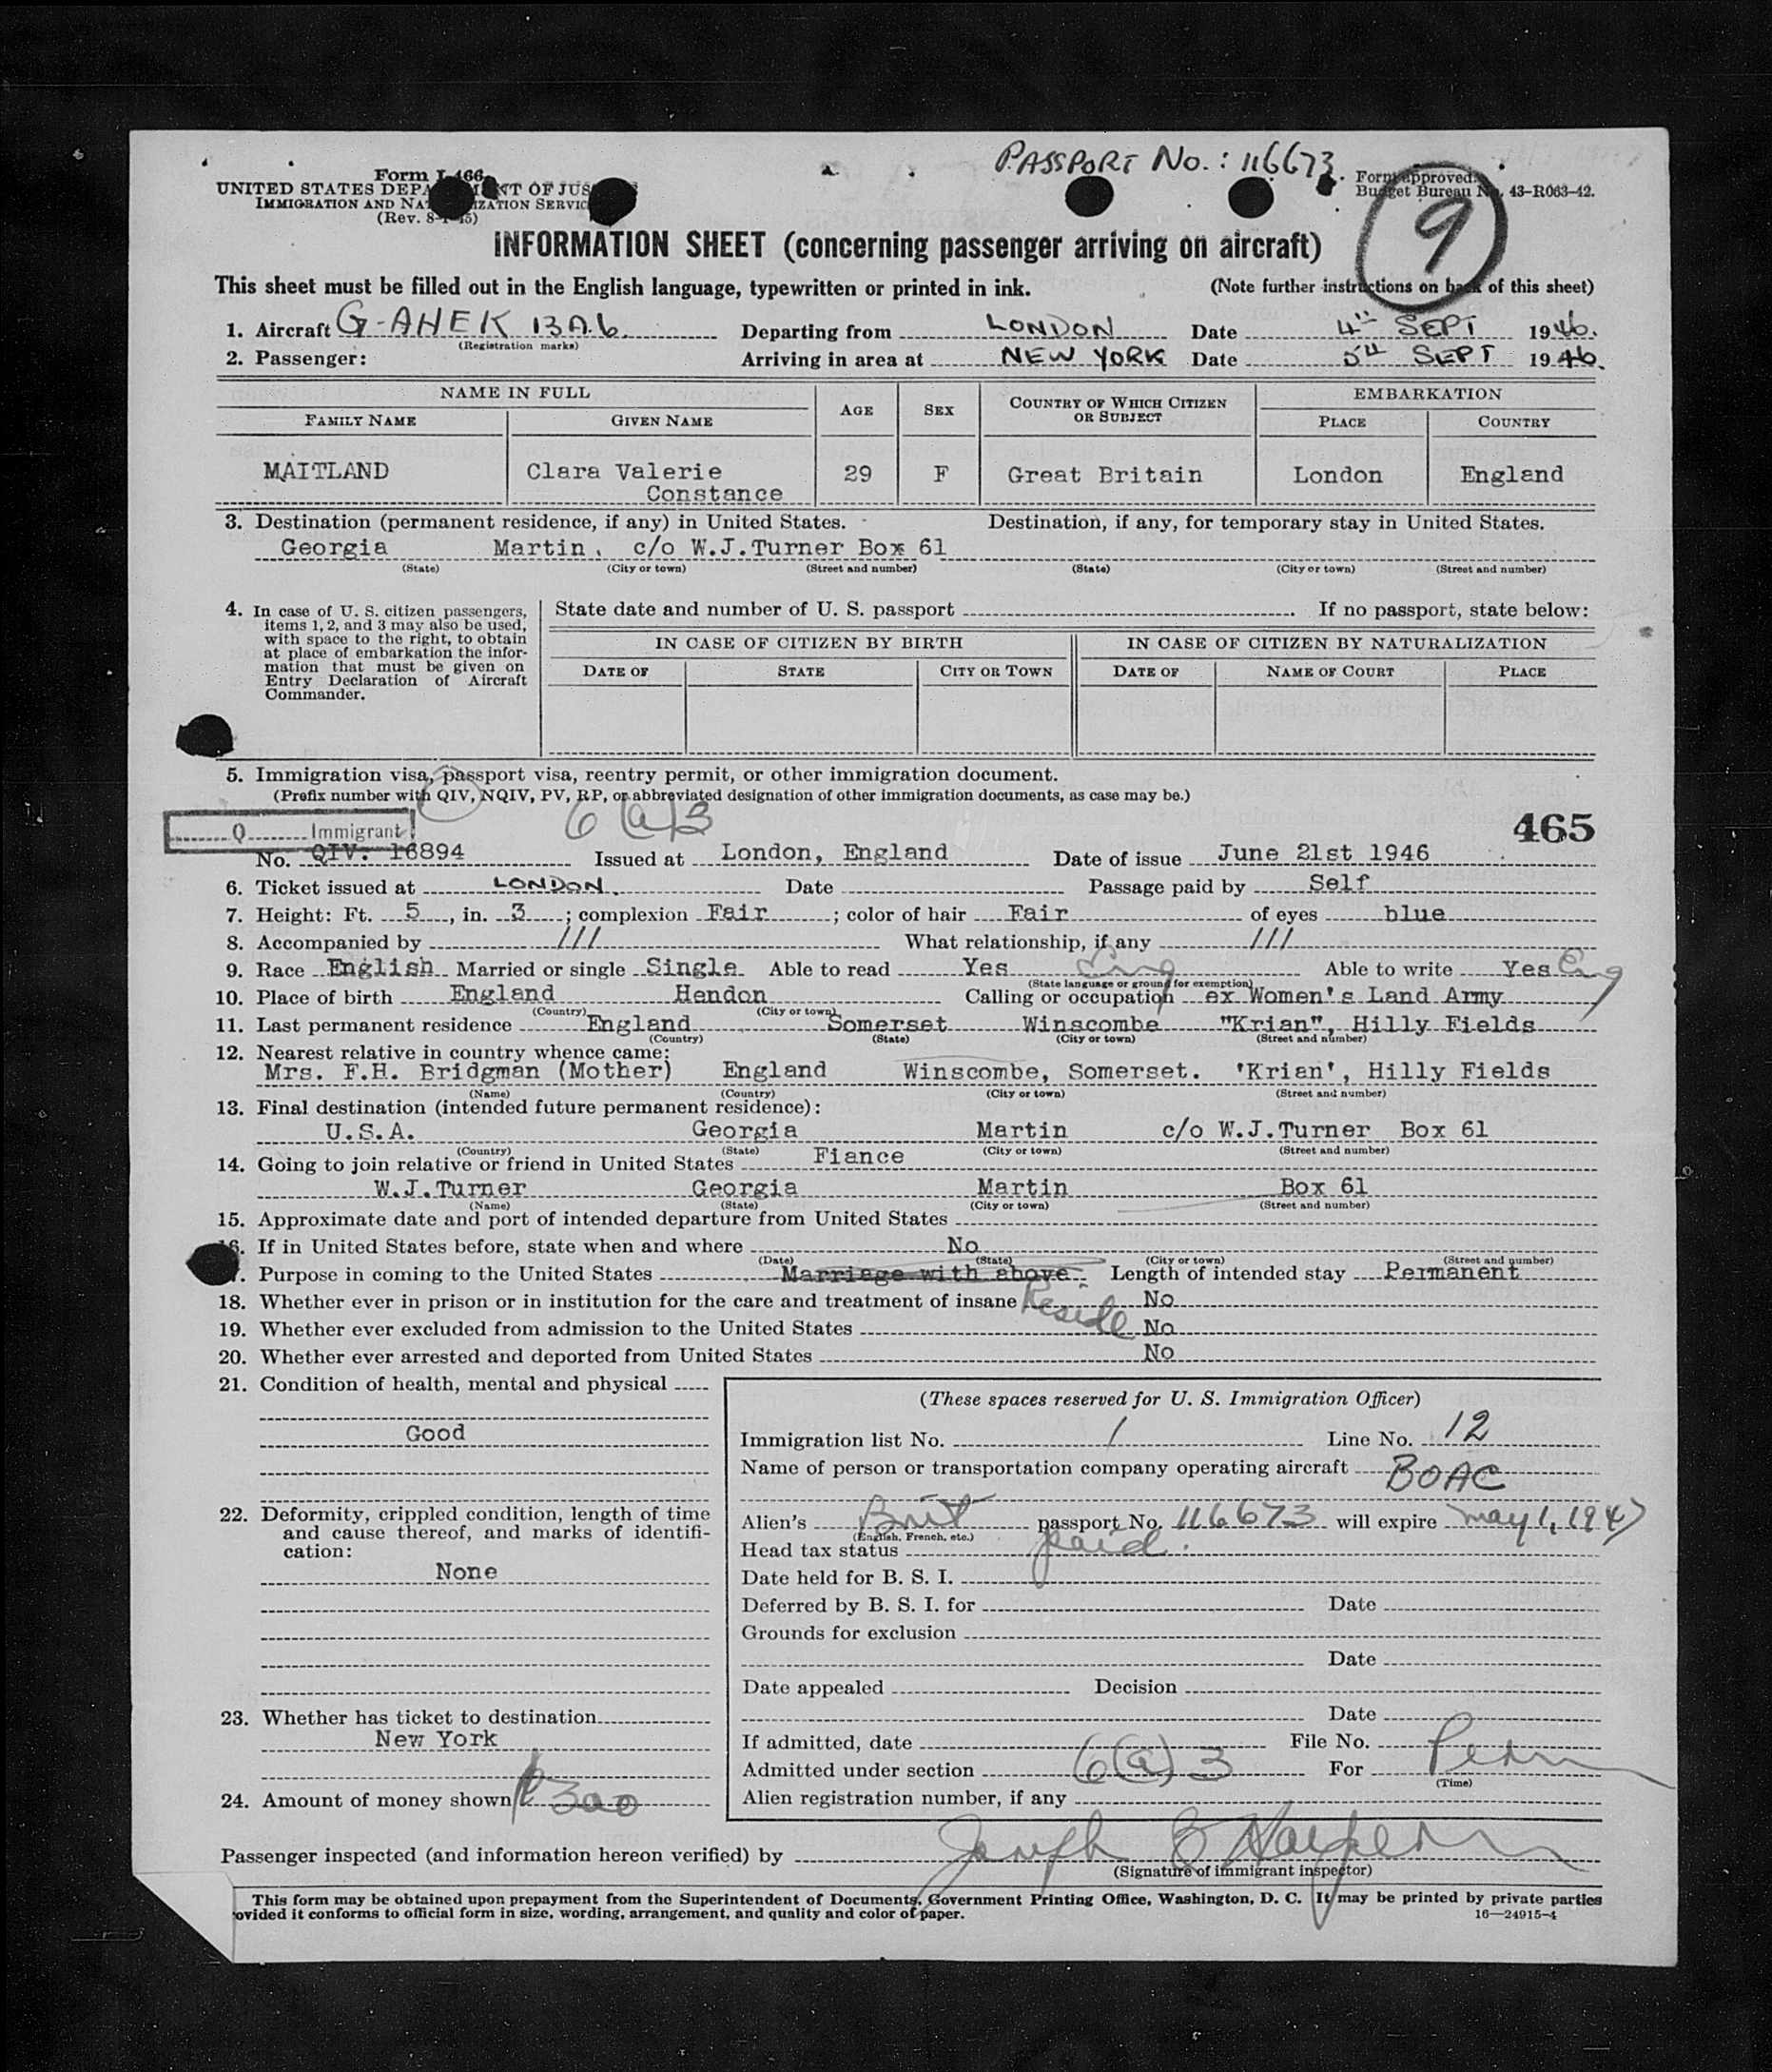 PASSPORT No.: 116673.
Form I-466
UNITED STATES DEPARTMENT OF JUS
IMMIGRATION AND NATURALIZATION SERVIC
(Rev. 8-1-45)
Form approved.
Budget Bureau No. 43-R063-42.
9
INFORMATION SHEET (concerning passenger arriving on aircraft)
This sheet must be filled out in the English language, typewritten or printed in ink. (Note further instructions on back of this sheet)
1. Aircraft G-AHEK Departing from LONDON Date 4TH SEPT 1946.
(Registration marks)
2. Passenger: Arriving in area at NEW YORK Date 5TH SEPT 1946.
NAME IN FULL AGE SEX COUNTRY OF WHICH CITIZEN OR SUBJECT EMBARKATION
FAMILY NAME GIVEN NAME PLACE COUNTRY
MAITLAND Clara Valerie 29 F Great Britain London England
Constance
3. Destination (permanent residence, if any) in United States. Destination, if any, for temporary stay in United States.
Georgia Martin. c/o W.J.Turner Box 61
(State) (City or town) (Street and number) (State) (City or town) (Street and number)
4. In case of U. S. citizen passengers,
items 1, 2, and 3 may also be used,
with space to the right, to obtain
at place of embarkation the infor-
mation that must be given on
Entry Declaration of Aircraft
Commander.
State date and number of U. S. passport . If no passport, state below:
IN CASE OF CITIZEN BY BIRTH IN CASE OF CITIZEN BY NATURALIZATION
DATE OF STATE CITY OR TOWN DATE OF NAME OF COURT PLACE
5. Immigration visa, passport visa, reentry permit, or other immigration document.
(Prefix number with QIV, NQIV, PV, RP, or abbreviated designation of other immigration documents, as case may be.)
Q Immigrant 6(a)3 465
No. QIV: 16894 Issued at London, England Date of issue June 21st 1946
6. Ticket issued at LONDON. Date Passage paid by Self
7. Height: Ft. 5, in. 3; complexion Fair; color of hair Fair of eyes blue
8. Accompanied by /// What relationship, if any ///
9. Race English Married or single Single Able to read Yes Eng Able to write Yes Eng
(State language or ground for exemption)
10. Place of birth England Hendon Calling or occupation ex Women's Land Army
(Country) (City or town)
11. Last permanent residence England Somerset Winscombe "Krian", Hilly Fields
(Country) (State) (City or town) (Street and number)
12. Nearest relative in country whence came:
Mrs. F.H. Bridgman (Mother) England Winscombe, Somerset. 'Krian', Hilly Fields
(Name) (Country) (City or town) (Street and number)
13. Final destination (intended future permanent residence):
U.S.A. Georgia Martin c/o W.J.Turner Box 61
(Country) (State) (City or town) (Street and number)
14. Going to join relative or friend in United States Fiance
W.J.Turner Georgia Martin Box 61
(Name) (State) (City or town) (Street and number)
15. Approximate date and port of intended departure from United States
16. If in United States before, state when and where No
(Date) (State) (City or town) (Street and number)
7. Purpose in coming to the United States Marriage with above. Length of intended stay Permanent
Reside
18. Whether ever in prison or in institution for the care and treatment of insane No
19. Whether ever excluded from admission to the United States No
20. Whether ever arrested and deported from United States No
21. Condition of health, mental and physical
Good
22. Deformity, crippled condition, length of time
and cause thereof, and marks of identifi-
cation:
None
23. Whether has ticket to destination
New York
24. Amount of money shown $300
(These spaces reserved for U. S. Immigration Officer)
Immigration list No. 1 Line No. 12
Name of person or transportation company operating aircraft BOAC
Alien's Brit passport No. 116673 will expire May 1, 1947
(English, French, etc.)
Head tax status paid.
Date held for B. S. I.
Deferred by B. S. I. for Date
Grounds for exclusion
Date
Date appealed Decision
Date
If admitted, date File No.
Admitted under section 6(a)3 For Perm
(Time)
Alien registration number, if any
Passenger inspected (and information hereon verified) by Joseph
(Signature of immigrant inspector)
This form may be obtained upon prepayment from the Superintendent of Documents, Government Printing Office, Washington, D. C. It may be printed by private parties
ovided it conforms to official form in size, wording, arrangement, and quality and color of paper. 16—24915-4